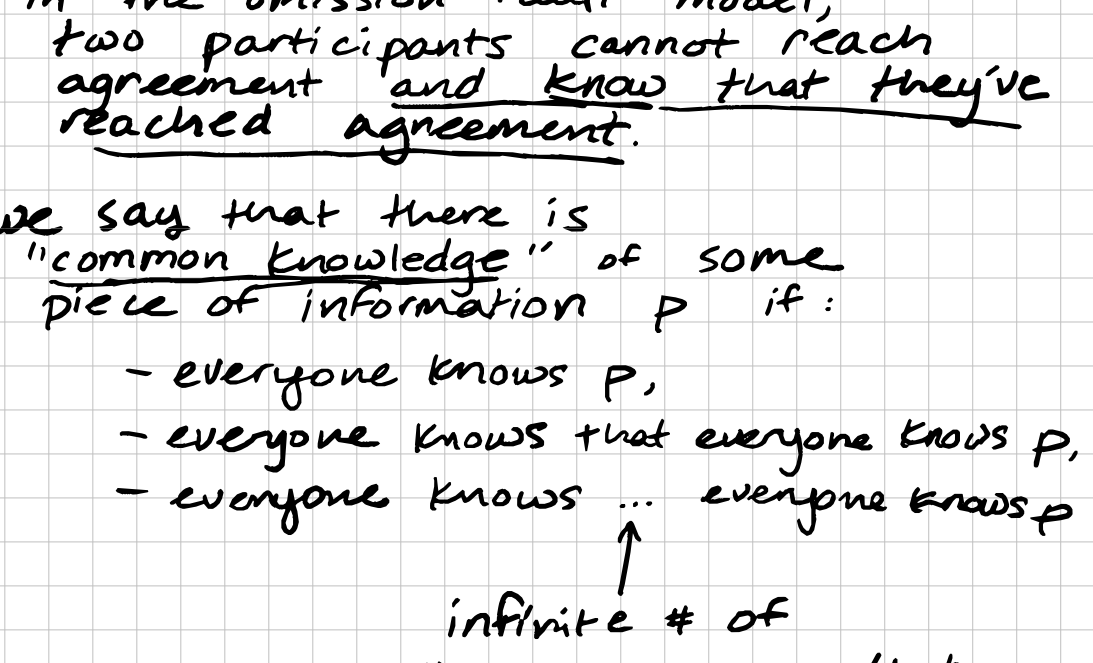 in the omission fault model,
two participants cannot reach
agreement and know that they've
reached agreement.
we say that there is
"common knowledge" of some
piece of information p if:
- everyone knows p,
- everyone knows that everyone knows p,
- everyone knows ... everyone knows p
infinite # of